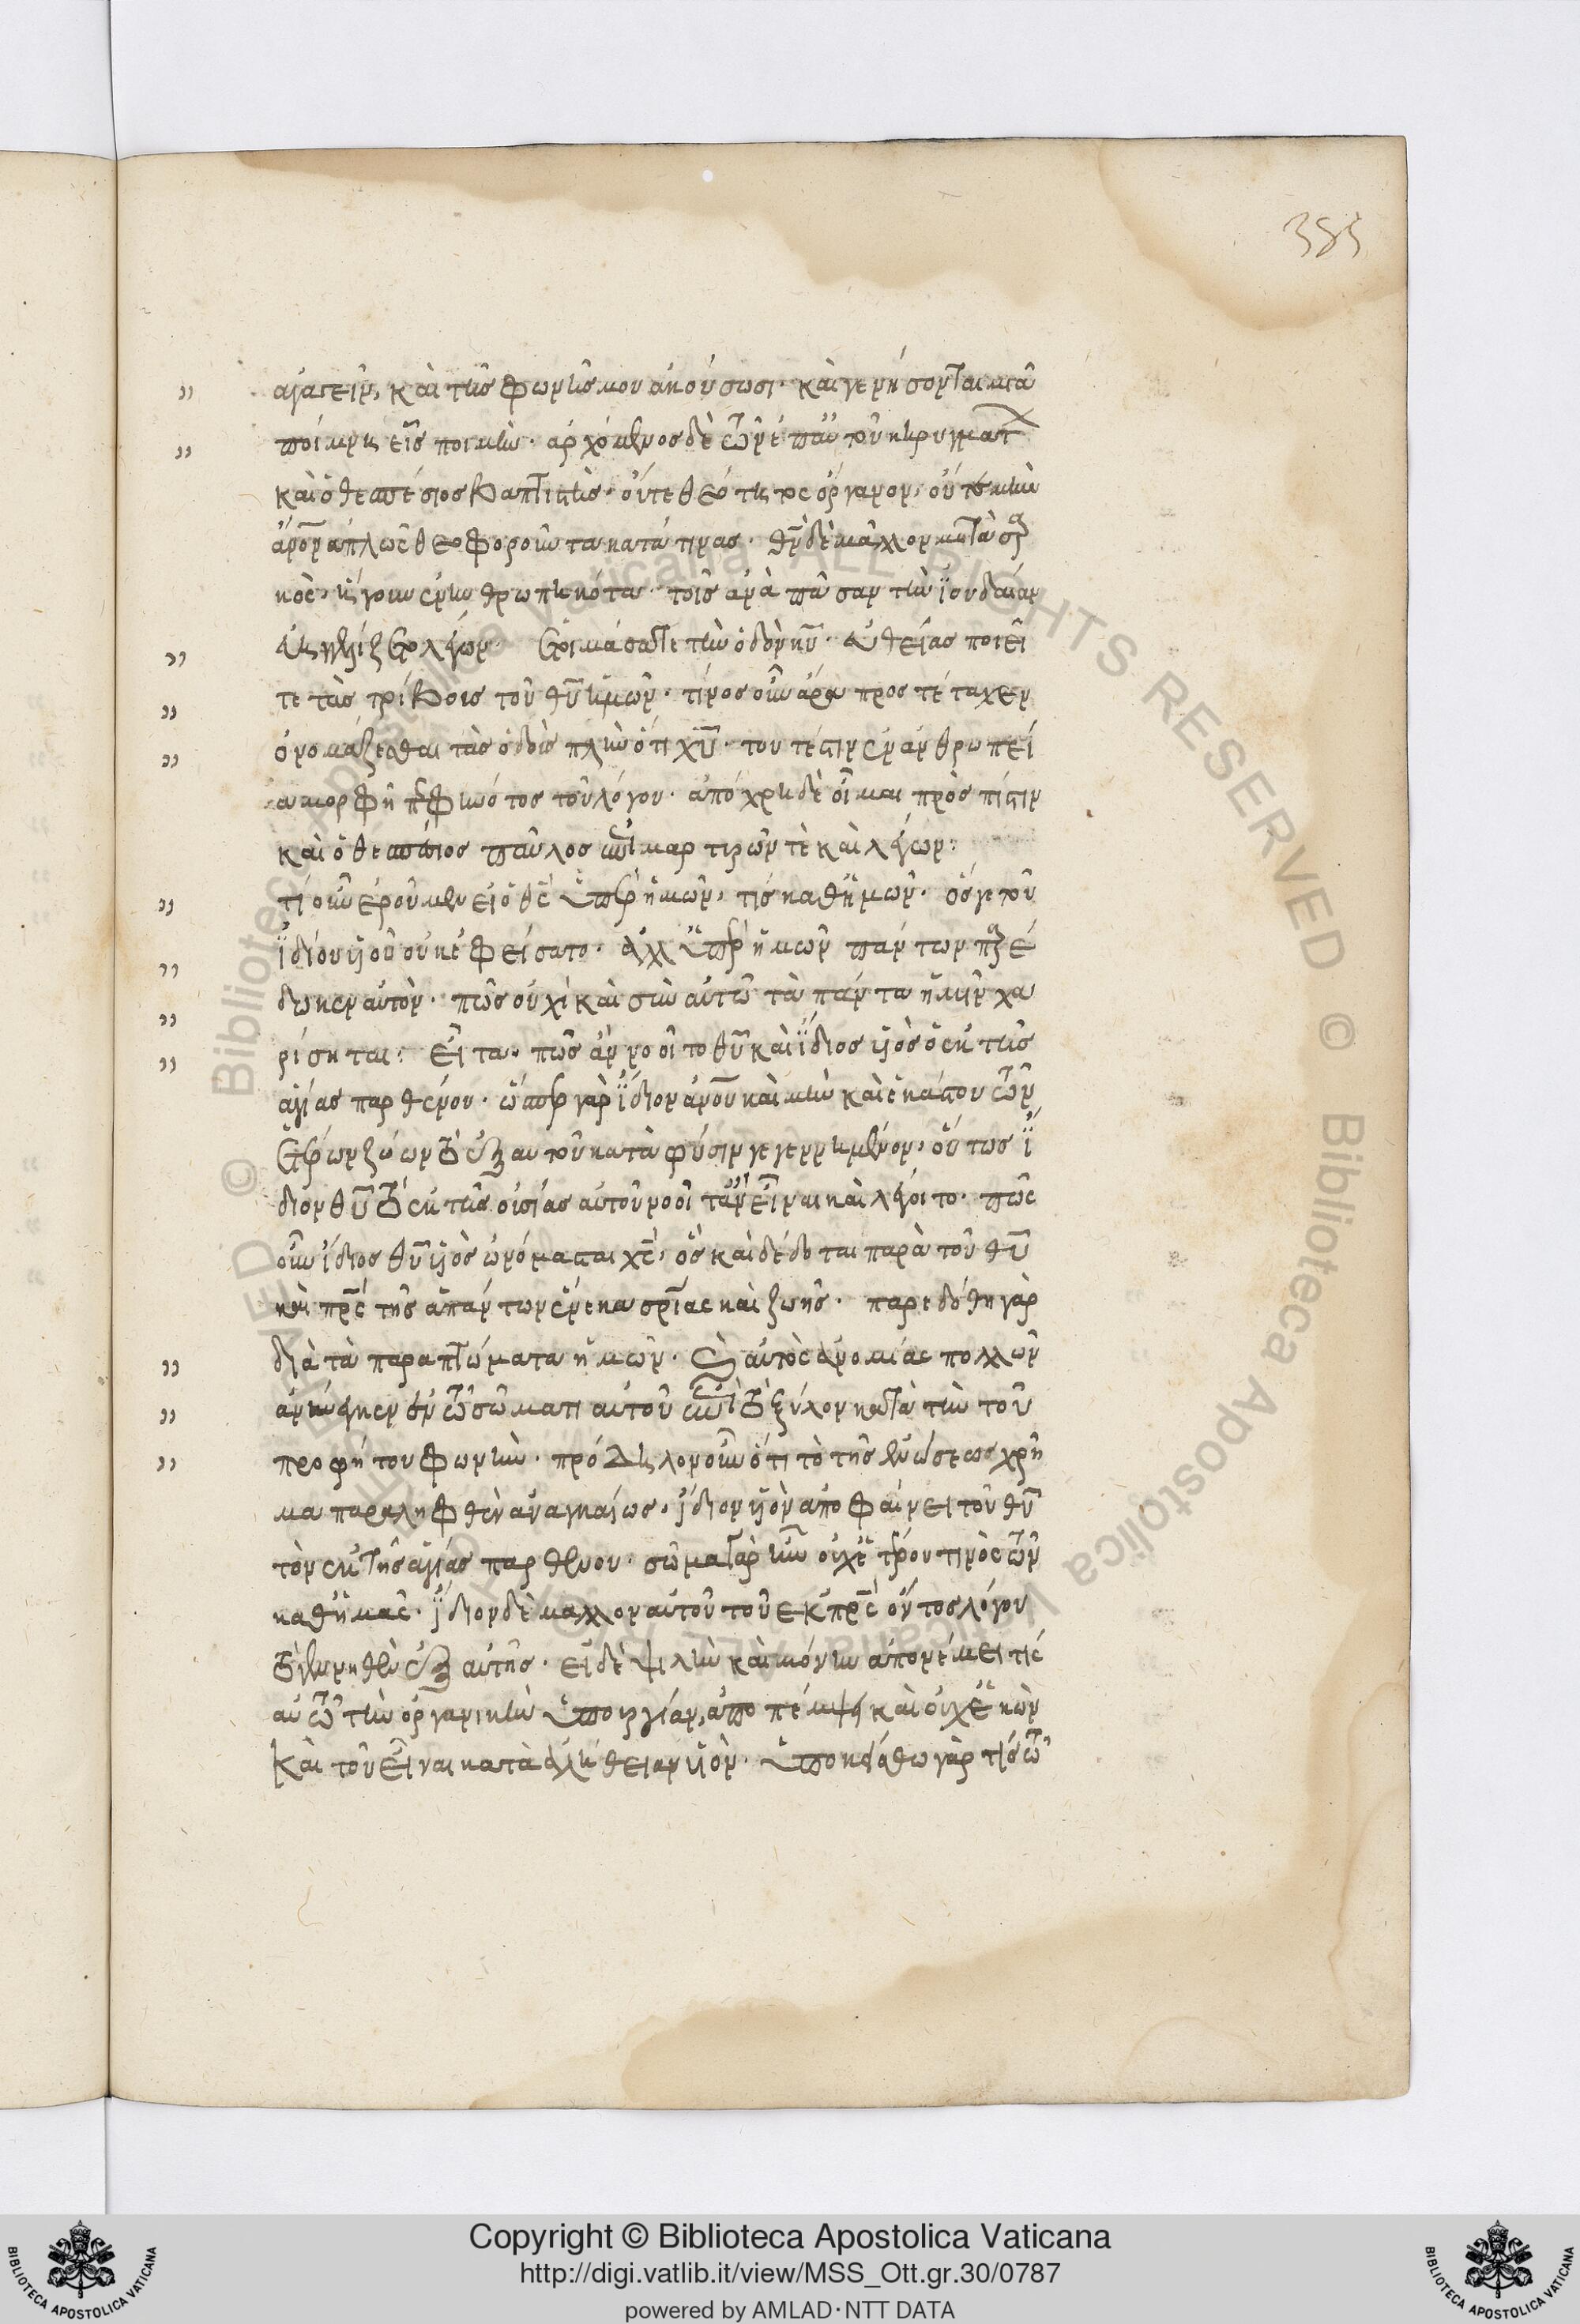 385
ἀγαγεῖν, καὶ τῆς φωνῆς μου ἀκούσωσι· καὶ γενήσονται μία
ποίμνη εἷς ποιμήν· ἀρχόμενος δὲ τῶν ἐπ' αὐτοῦ κηρυγμάτων
καὶ ὁ θεσπέσιος βαπτιστής· οὔτε θεότητος ὄργανον, οὔτε μὴν
ἄνον ἁπλῶς θεοφοροῦντα κατά τινας· θν δὲ μᾶλλον μετὰ σαρ
κὸς, ἤγουν ἐνηνθρωπηκότα· τοῖς ἀνὰ πᾶσαν τὴν ἰουδαίαν
λέγων· ἑτοιμάσατε τὴν ὁδὸν κυ· εὐθείας ποιεῖ
τε τὰς τρίβους τοῦ θυ ἡμῶν· τίνος οὖν ἄρα προστέταχεν
ὁδοὺς πλὴν ὅτι χυ· τουτέστιν ἐν ἀνθρωπεί
α μορφῇ πεφηνότος τοῦ λόγου· ἀπόχρη δὲ οἶμαι πρὸς πίστιν
καὶ ὁ θεσπέσιος παῦλος λέγων·
τί οὖν ἐροῦμεν εἰ ὁ θς ὑπὲρ ἡμῶν, τίς καθ' ἡμῶν· ὅς γε τοῦ
ἰδίου υἱοῦ οὐκ ἐφείσατο· ἀλλ' ὑπὲρ ἡμῶν πάντων παρέ
δωκεν αὐτόν· πῶς οὐχὶ καὶ σὺν αὐτῷ τὰ πάντα ἡμῖν χα
ρίσηται· εἶτα πῶς ἂν νοοῖτο θυ καὶ ἴδιος υἱὸς ὁ ἐκ τῆς
ἁγίας παρθένου· ὥσπερ γὰρ ἴδιον ἀνου καὶ μὴν καὶ ἑκάστου τῶν
ἑτέρων ζώων τὸ ἐξ αὐτοῦ κατὰ φύσιν γεγεννημένον, οὕτως ἴ
διον θυ τὸ ἐκ τῆς οὐσίας αὐτοῦ νοοῖτ' ἂν εἶναι καὶ λέγοιτο· πῶς
οὖν ἴδιος θυ υἱὸς ὠνόμασται χς, ὃς καὶ δέδοται παρὰ τοῦ θυ
καὶ πρς τῆς ἁπάντων ἕνεκα σριας καὶ ζωῆς· παρεδόθη γὰρ
διὰ τὰ παραπτώματα ἡμῶν· καὶ αὐτὸς ἀνομίας πολλῶν
ἀνήνεγκεν ἐν τῷ σώματι αὐτοῦ ἐπὶ τὸ ξύλον κατὰ τὴν τοῦ
προφήτου φωνήν· πρόδηλον οὖν ὅτι τὸ τῆς ἑνώσεως χρῆ
μα παραληφθὲν ἀναγκαίως, ἴδιον υἱὸν ἀποφαίνει τοῦ θυ
τὸν ἐκ τῆς ἁγίας παρθένου· σῶμα γὰρ ἦν οὐχ' ἑτέρου τινὸς τῶν
καθ' ἡμᾶς· ἴδιον δὲ μᾶλλον αὐτοῦ τοῦ ἐκ πρς ὄντος λόγου
τὸ γεννηθὲν ἐξ αὐτῆς· εἰ δὲ ψιλὴν καὶ μόνην ἀπονέμει τις
αὐτῷ τὴν ὀργανικὴν ὑπουργίαν, ἀποπέμψει καὶ οὐχ' ἑκὼν
καὶ τοῦ εἶναι κατὰ ἀλήθειαν υἱόν· ὑποκείσθω γὰρ τις τῷ
© Biblioteca Apostolica Vaticana ALL RIGHTS RESERVED © Biblioteca Apostolica Vaticana ALL RIGHTS RESERVED
Copyright © Biblioteca Apostolica Vaticana
http://digi.vatlib.it/view/MSS_Ott.gr.30/0787
powered by AMLAD·NTT DATA
BIBLIOTECA APOSTOLICA VATICANA
BIBLIOTECA APOSTOLICA VATICANA